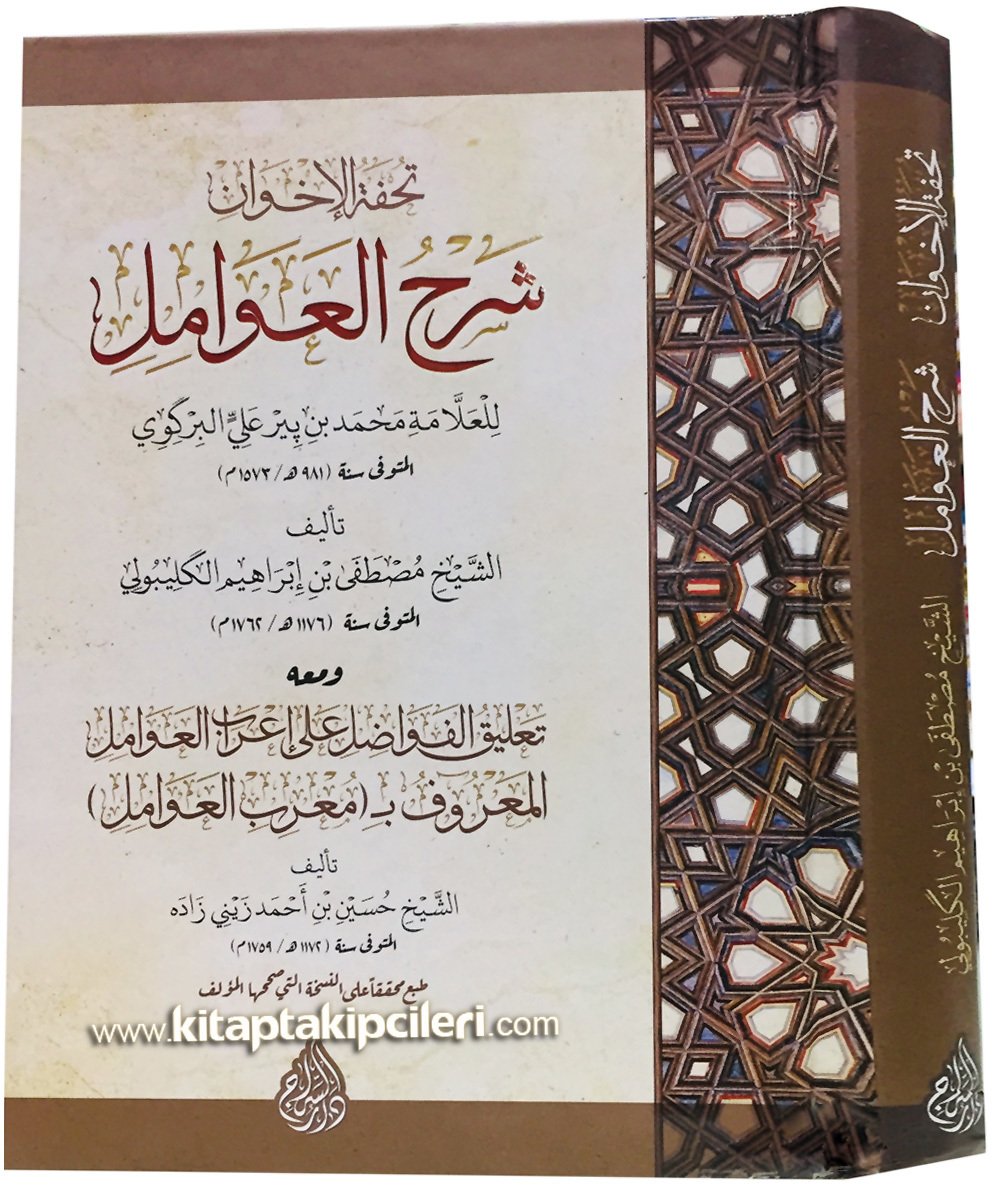 تحفة الإخوان
شَرْحُ العَوَامِلِ
لِلْعَلَّامَةِ مُحَمَد بنِ پِيْر عَلِيٍّ البِرْكِوِي
المتوفى سنة (٩٨١ هـ / ١٥٧٣م)
تأليف
الشَّيْخِ مُصْطَفَى بْنِ إِبْرَاهِيم الكَلِيبُولِي
المتوفى سنة (١١٧٦ هـ / ١٧٦٢م)
ومعه
تَعْلِيقُ الفَوَاضِلِ عَلَى إِعْرَابِ العَوَامِلِ
المَعْرُوفُ بـ (مُعْرِبُ العَوَامِلِ)
تأليف
الشَّيْخِ حُسَيْنِ بْنِ أَحْمَد زَيْنِي زَادَه
المتوفى سنة (١١٧٢ هـ / ١٧٥٩م)
طبع محققاً على النسخة التي صححها المؤلف
www.kitaptakipcileri.com
دار السراج
تحفة الإخوان
شرح العوامل
الشَّيْخِ مُصْطَفَى بْنِ إِبْرَاهِيم الكَلِيبُولِي
دار السراج